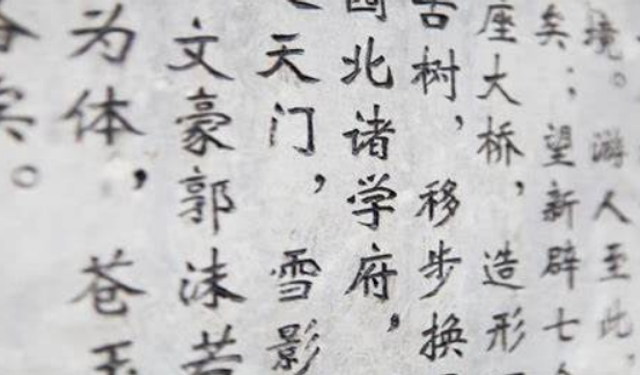 境。游人至此，
矣；望新辟七
座大桥，造形
古树，移步换
国北诸学府，
天门，雪影
文豪郭沫若
为体，苍玉